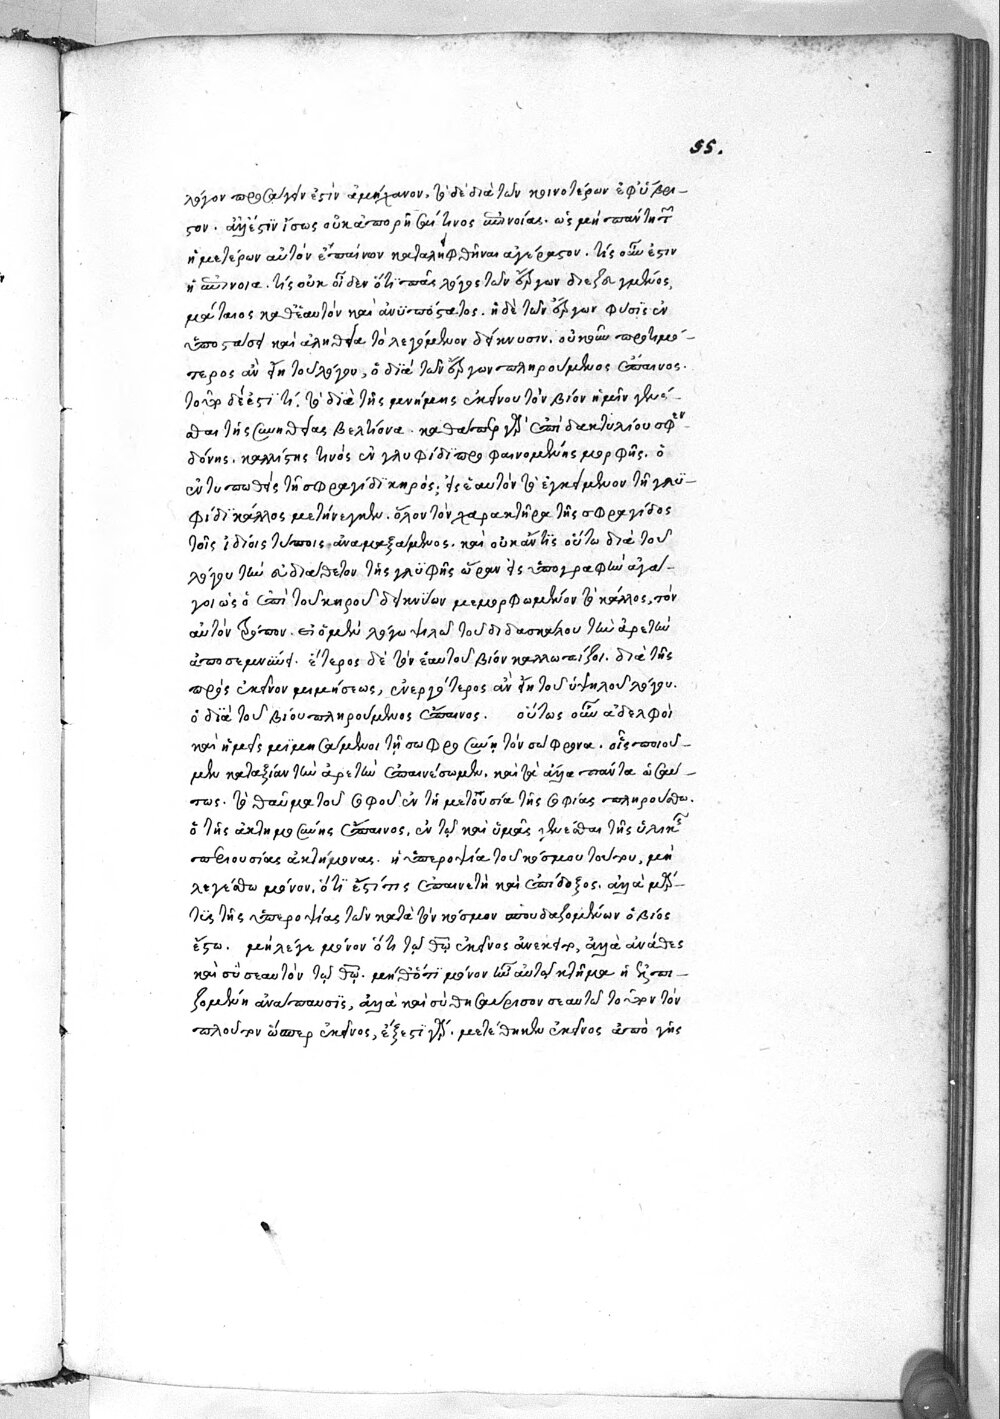 55.
λόγον προσάγειν ἐστὶν ἀμήχανον. τὸ δὲ διὰ τῶν κοινοτέρων ἐφύβρι-
στον. ἀλλ' ἔστιν ἴσως οὐκ ἀπορῆσαί τινος ἐπινοίας. ὡς μὴ παντὶ τῷ
ἡμετέρων αὐτὸν ἐπαίνων καταλειφθῆναι ἀγέραστον. τίς οὖν ἐστιν
ἡ ἐπίνοια. τίς οὐκ οἶδεν ὅτι πᾶς λόγος τῶν ἔργων διεζευγμένος,
μάταιος καθ' ἑαυτὸν καὶ ἀνυπόστατος. ἡ δὲ τῶν ἔργων φύσις ἐν
ὑποστάσει καὶ ἀληθείᾳ τὸ λεγόμενον δείκνυσιν. οὐκοῦν προτιμό-
τερος ἂν εἴη τοῦ λόγου, ὁ διὰ τῶν ἔργων πληρούμενος ἔπαινος.
τοῦτο δέ ἐστι τί, τὸ διὰ τῆς μνήμης ἐκείνου τὸν βίον ἡμῖν γενέ-
σθαι τῆς συνηθείας βελτίονα. καθάπερ γὰρ ἐπὶ δακτυλίου σφεν-
δόνης. καλλίστης τινὸς ἐν γλυφίδι προφαινομένης μορφῆς. ὁ
ἐντυπωθεὶς τῇ σφραγίδι κηρός, εἰς ἑαυτὸν τὸ ἐγκείμενον τῇ γλυ-
φίδι κάλλος μετήνεγκεν. ὅλον τὸν χαρακτῆρα τῆς σφραγίδος
τοῖς ἰδίοις τύποις ἀναμαξάμενος. καὶ οὐκ ἄν τις οὕτω διὰ τοῦ
λόγου τὴν εὐδιάθετον τῆς γλυφῆς ὥραν εἰς ὑπογραφὴν ἀγά-
γοι ὡς ὁ ἐπὶ τοῦ κηροῦ δεικνύων μεμορφωμένον τὸ κάλλος. τὸν
αὐτὸν τρόπον. εἰ ὁ μὲν λόγῳ ψιλῷ τοῦ διδασκάλου τὴν ἀρετὴν
ἀποσεμνύνει. ἕτερος δὲ τὸν ἑαυτοῦ βίον καλλωπίζοι. διὰ τῆς
πρὸς ἐκεῖνον μιμήσεως, ἐνεργότερος ἂν εἴη τοῦ ὑψηλοῦ λόγου.
ὁ διὰ τοῦ βίου πληρούμενος ἔπαινος. οὕτως οὖν ἀδελφοὶ
καὶ ἡμεῖς μιμησάμενοι τῇ σωφροσύνῃ τὸν σώφρονα. οἷς ποιοῦ-
μεν κατ' ἀξίαν τὴν ἀρετὴν ἐπαινέσωμεν. καὶ τὰ ἄλλα πάντα ὡσαύ-
τως. τὸ θαῦμα τοῦ σοφοῦ ἐν τῇ μετουσίᾳ τῆς σοφίας πληρούσθω.
ὁ τῆς ἀκτημοσύνης ἔπαινος, ἐν τῷ καὶ ὑμᾶς γενέσθαι τῆς ὑλικῆς
περιουσίας ἀκτήμονας. ἡ ὑπεροψία τοῦ κόσμου τούτου, μὴ
λεγέσθω μόνον, ὅτι ἐστί τις ἐπαινετὴ καὶ ἐπίδοξος. ἀλλὰ μάρ-
τυς τῆς ὑπεροψίας τῶν κατὰ τὸν κόσμον σπουδαζομένων ὁ βίος
ἔστω. μὴ λέγε μόνον ὅτι τῷ θεῷ ἐκεῖνος ἀνέκειτο, ἀλλὰ ἀνάθες
καὶ σὺ σεαυτὸν τῷ θεῷ. μηδ' ὅτι μόνον ἦν αὐτῷ κτῆμα ἡ ἐλπι-
ζομένη ἀνάπαυσις, ἀλλὰ καὶ σὺ θησαύρισον σεαυτῷ τοῦτον τὸν
πλοῦτον ὥσπερ ἐκεῖνος, ἔξεστι γάρ. μετέθηκεν ἐκεῖνος ἀπὸ γῆς